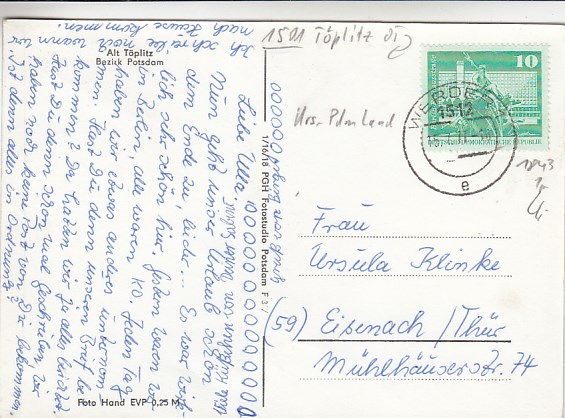 1501 Töplitz
Alt Töplitz
Bezirk Potsdam
Liebe Ulla,
Nun geht unser Urlaub schon
dem Ende zu, leider... Es war wirk-
lich sehr schön hier. Gestern waren wir
in Berlin, alle waren KO. Jeden Tag
haben wir etwas anderes unternom-
men. Hast Du denn unseren Brief be-
kommen? Da hatten wir ja alles berichtet.
Hast Du denn schon mal geschrieben, wir
haben noch keine Post von Dir bekommen.
Ist denn alles in Ordnung?
Ich schreibe noch wann wir
nach Hause kommen.
1/10/18 PGH Fotostudio Potsdam F 37
Foto Hand EVP 0,25 M
10
WERDER
1512
e
Frau
Ursula Klinke
(59) Eisenach/Thür
Mühlhäuserstr. 74